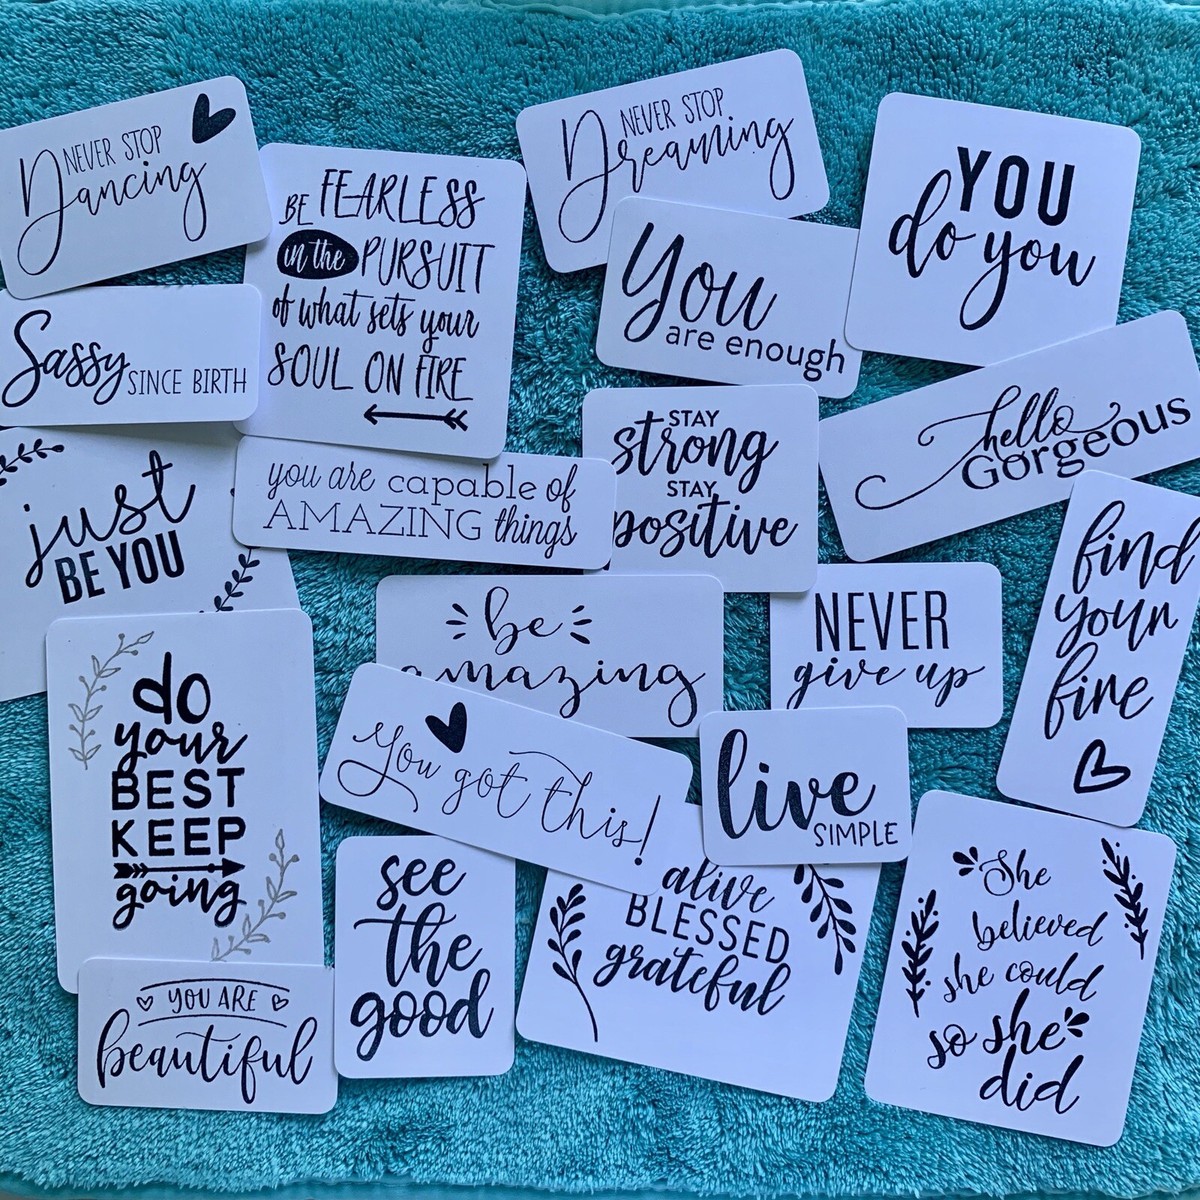 NEVER STOP
Dancing
NEVER STOP
Dreaming
YOU
do you
BE FEARLESS
in the PURSUIT
of what sets your
SOUL ON FIRE
You
are enough
Sassy SINCE BIRTH
hello
Gorgeous
STAY
strong
STAY
positive
just
BE YOU
you are capable of
AMAZING things
find
your
fire
be
amazing
NEVER
give up
do
your
BEST
KEEP
going
You got this!
live
SIMPLE
see
the
good
alive
BLESSED
grateful
She
believed
she could
so she
did
YOU ARE
beautiful